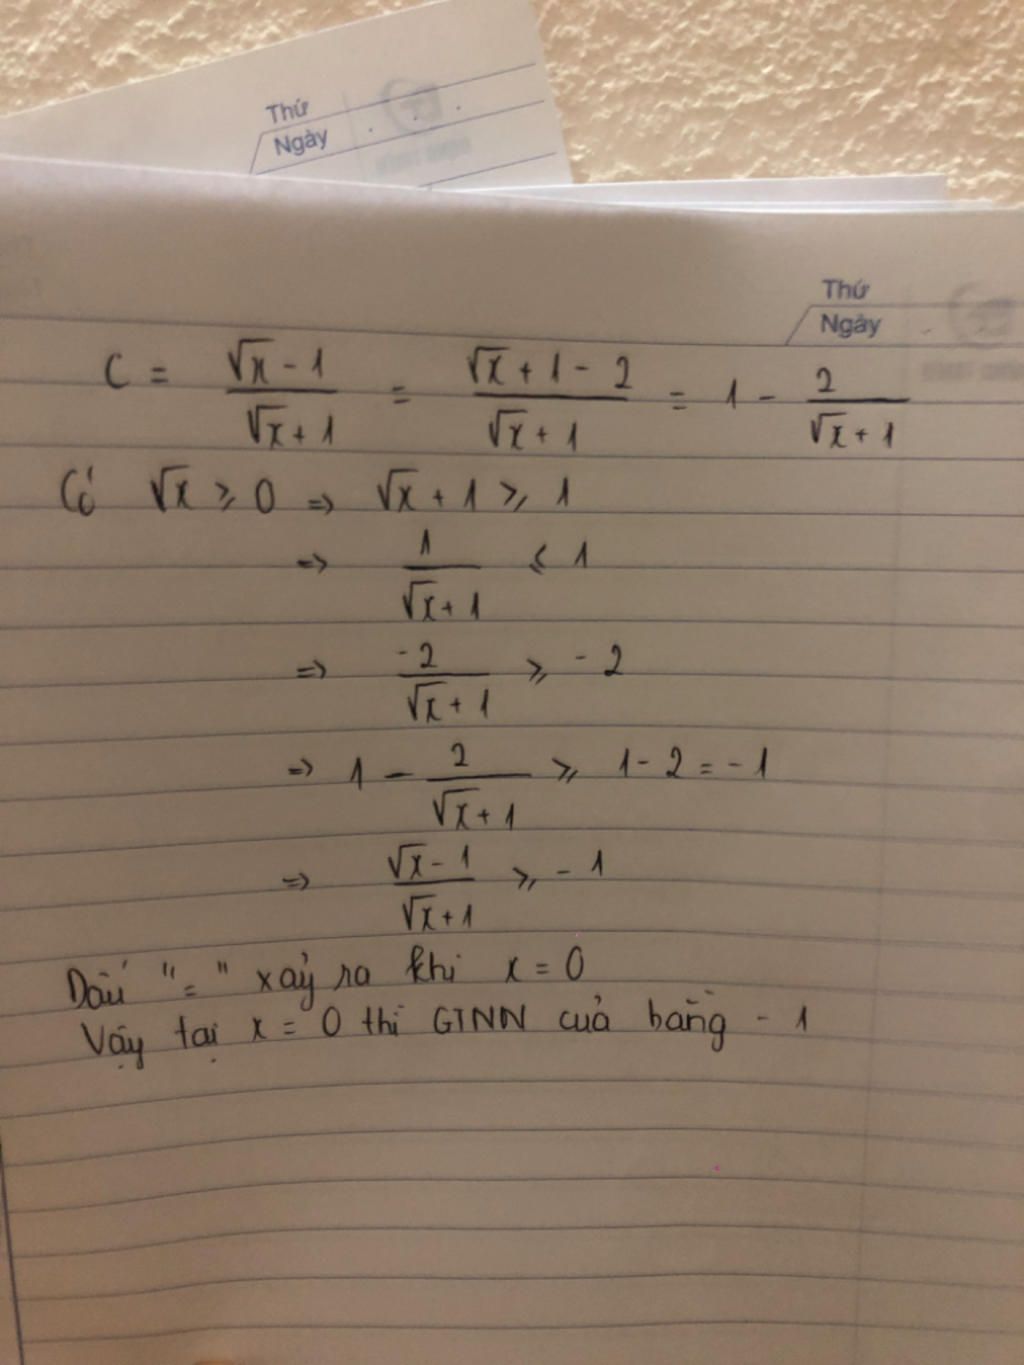 Thứ
Ngày
Thứ
Ngày
C = \frac{\sqrt{x} - 1}{\sqrt{x} + 1} = \frac{\sqrt{x} + 1 - 2}{\sqrt{x} + 1} = 1 - \frac{2}{\sqrt{x} + 1}
Có \sqrt{x} ⩾ 0 => \sqrt{x} + 1 ⩾ 1
=> \frac{1}{\sqrt{x} + 1} ⩽ 1
=> \frac{-2}{\sqrt{x} + 1} ⩾ - 2
=> 1 - \frac{2}{\sqrt{x} + 1} ⩾ 1 - 2 = - 1
=> \frac{\sqrt{x} - 1}{\sqrt{x} + 1} ⩾ - 1
Dấu "=" xảy ra khi x = 0
Vậy tại x = 0 thì GTNN của bằng - 1